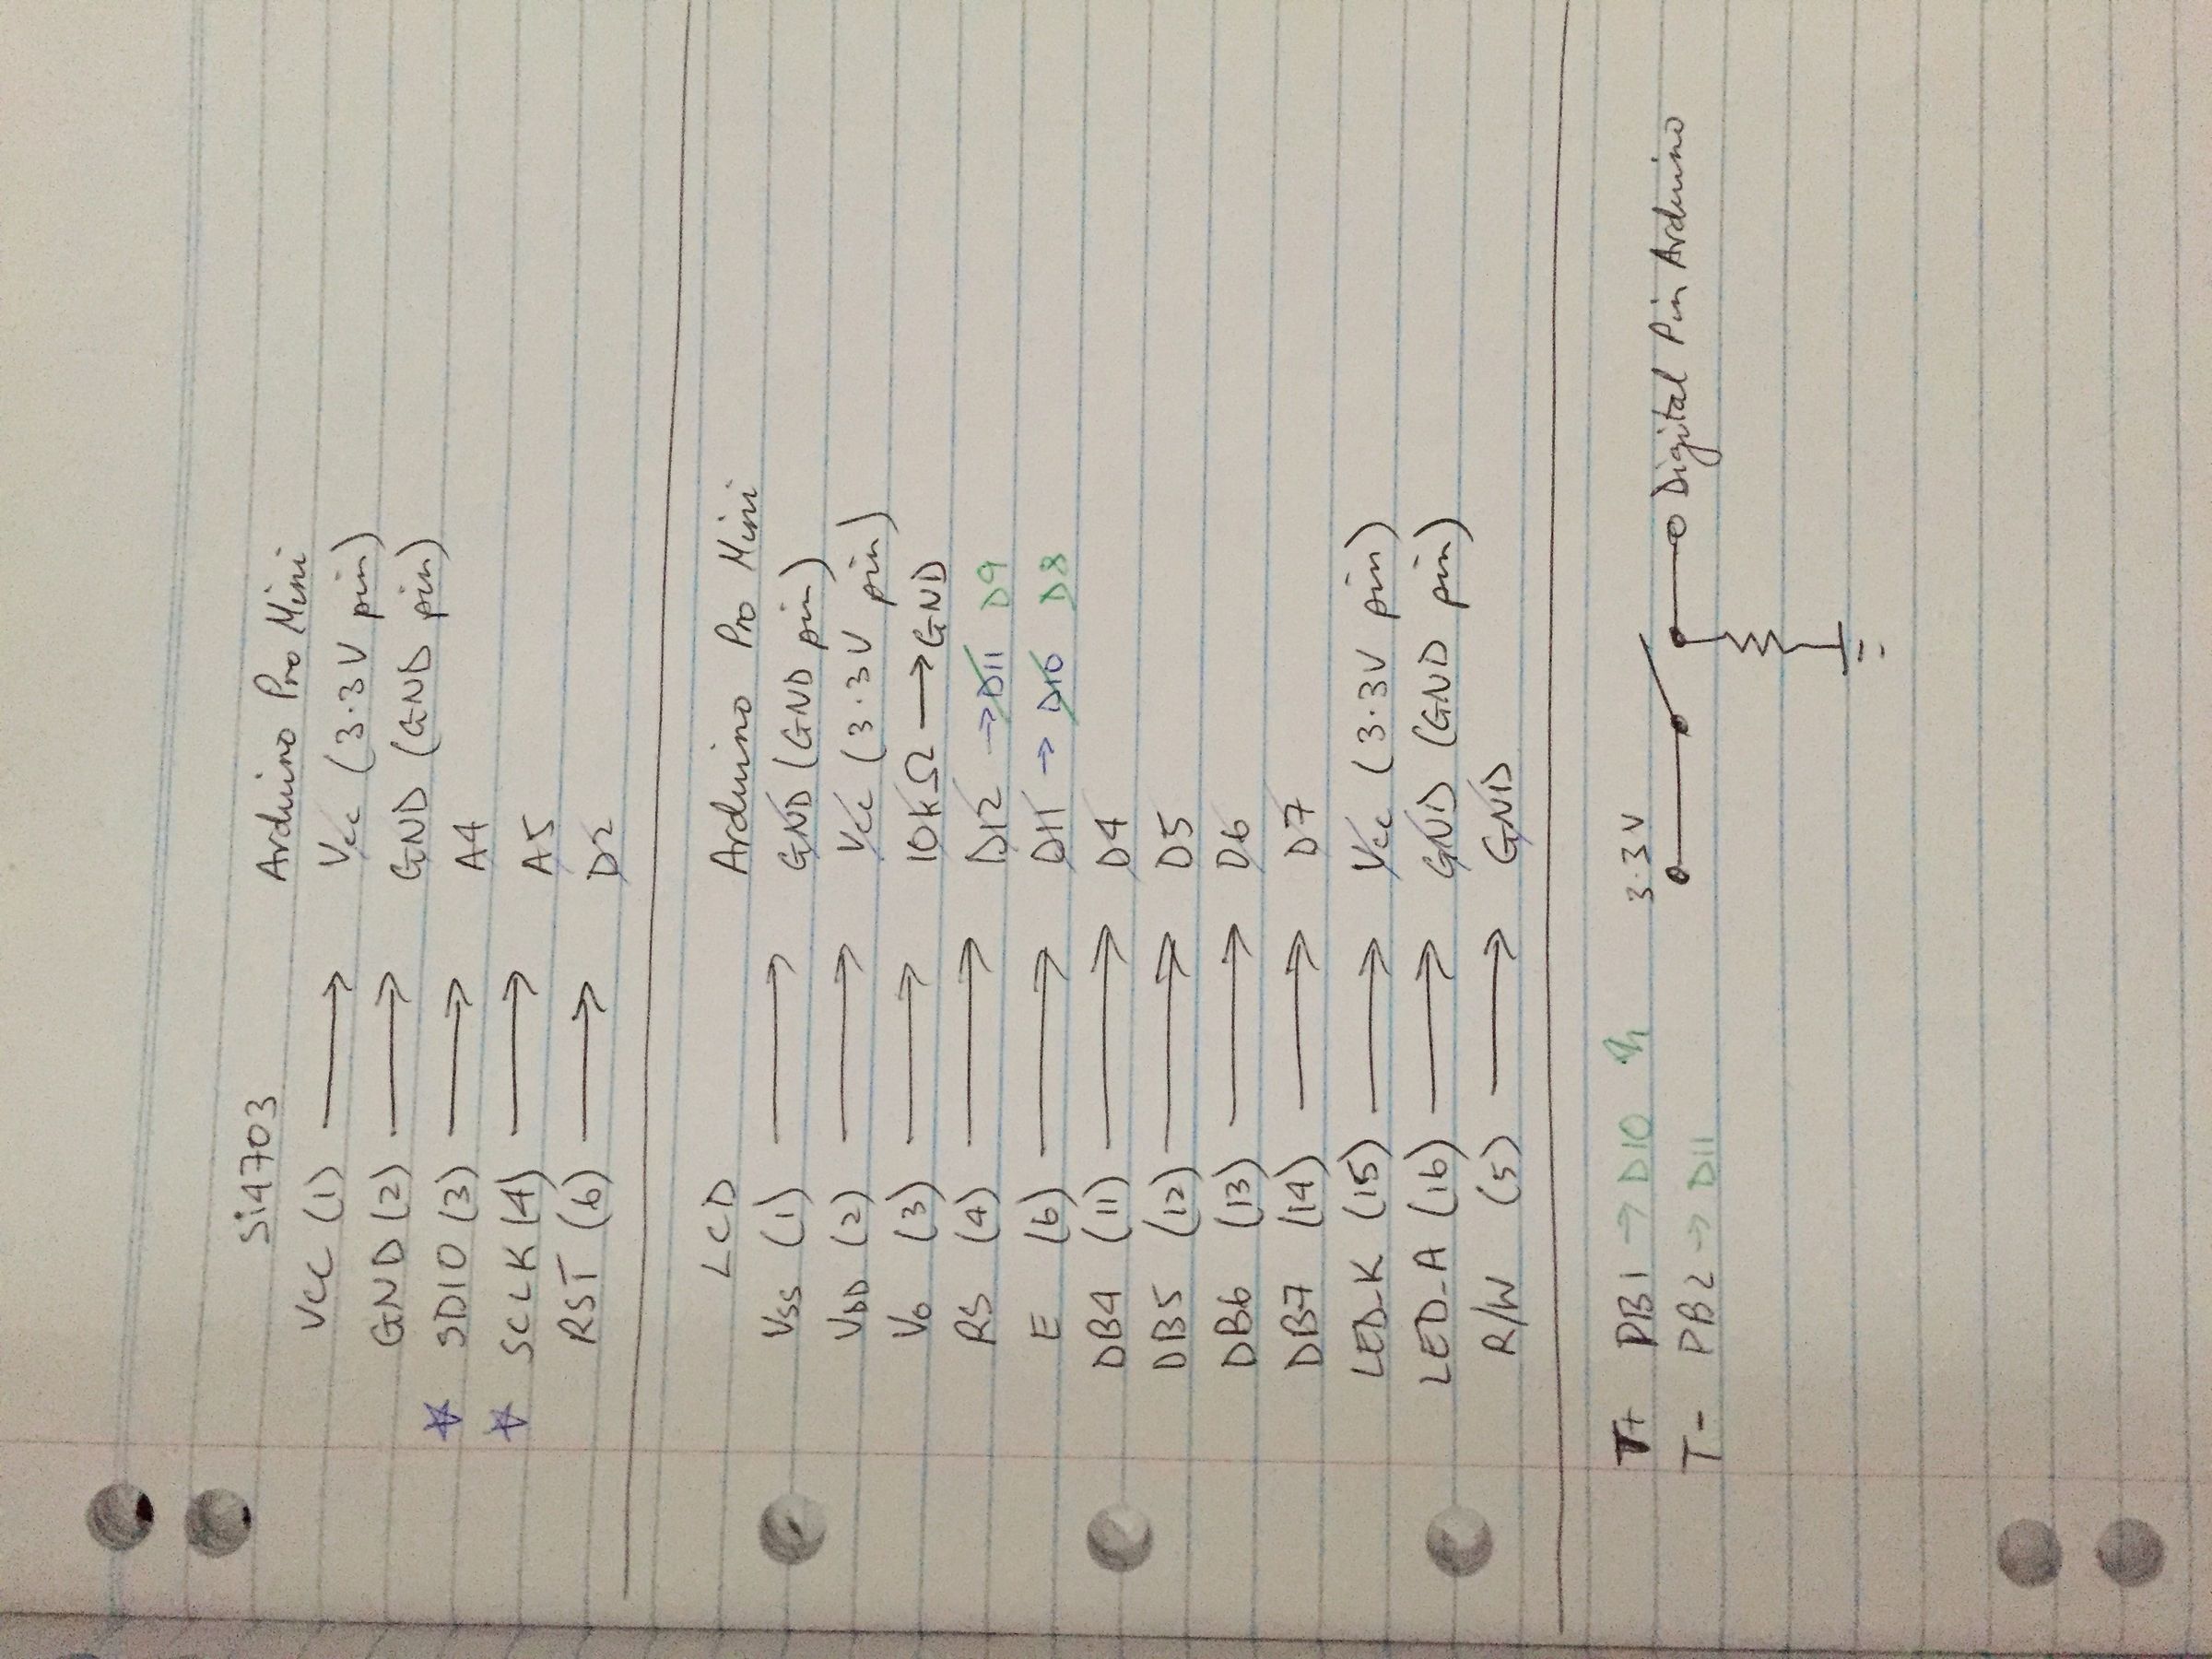 Si4703 Arduino Pro Mini
VCC (1) → Vcc (3.3V pin)
GND (2) → GND (GND pin)
☆ SDIO (3) → A4
☆ SCLK (4) → A5
RST (6) → D2
LCD Arduino Pro Mini
VSS (1) → GND (GND pin)
VDD (2) → Vcc (3.3V pin)
V0 (3) → 10kΩ → GND
RS (4) → D12 → D11 D9
E (6) → D11 → D10 D8
DB4 (11) → D4
DB5 (12) → D5
DB6 (13) → D6
DB7 (14) → D7
LED-K (15) → Vcc (3.3V pin)
LED-A (16) → GND (GND pin)
R/W (5) → GND
T+ PB1 → D10 3.3V
T- PB2 → D11 Digital Pin Arduino